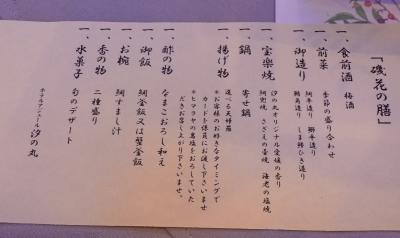 「磯花の膳」
一、食前酒　梅酒
一、前菜　季節の盛り合わせ
一、御造り　鯛平造り　鰤平造り
鮪角造り　しま鯵ひき造り
一、宝楽焼　汐の丸オリジナル愛媛の香り
鯛兜焼　さざえの壷焼　海老の塩焼
一、鍋　寄せ鍋
一、揚げ物　選べる天婦羅
＊お客様のお好きなタイミングで
カードを係員にお渡し下さいませ
＊ヒマラヤの岩塩をおろしていた
だきお召し上がり下さいませ。
一、酢の物　なまこおろし和え
一、御飯　鯛釜飯又は蟹釜飯
一、お椀　鯛すまし汁
一、香の物　二種盛り
一、水菓子　旬のデザート
ホテルアジュール汐の丸